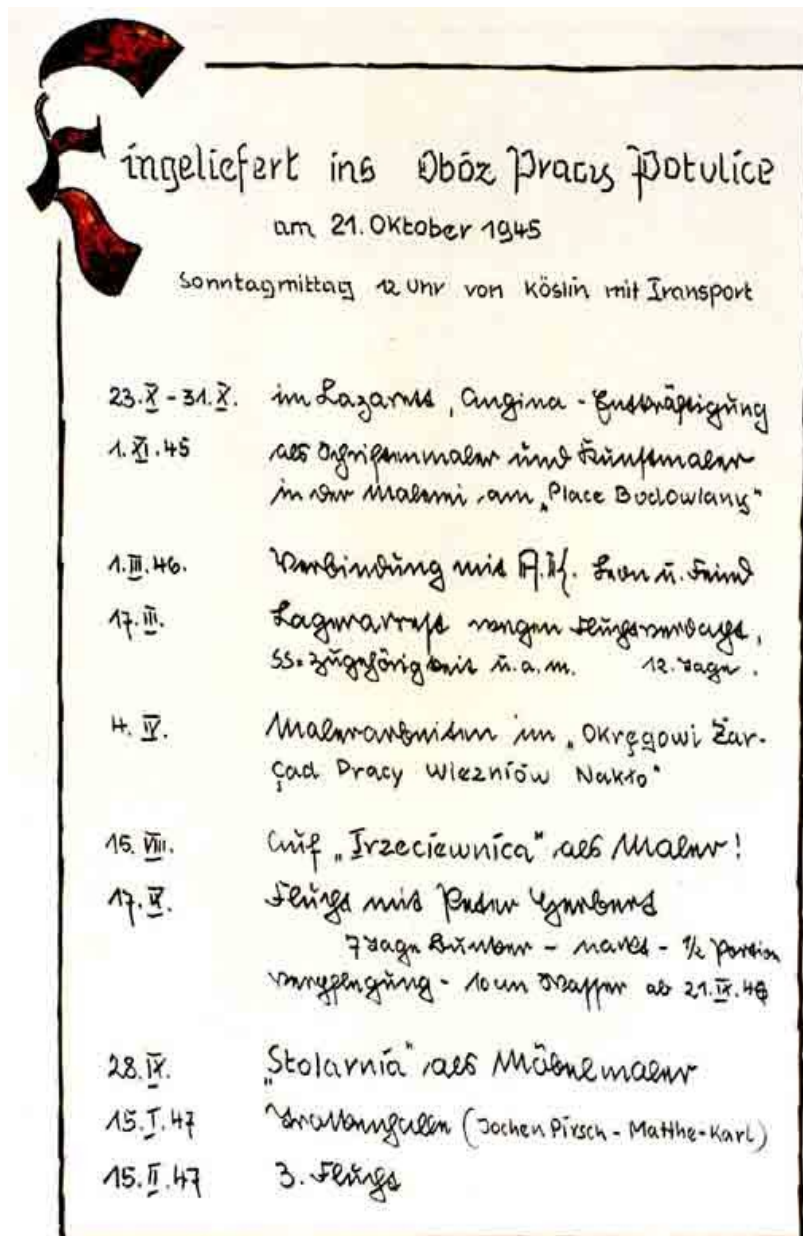 Eingeliefert ins Obóz Pracy Potulice
am 21. Oktober 1945
Sonntagmittag 12 Uhr von Köslin mit Transport
23.X - 31.X. im Lazarett, Angina - Entkräftigung
1.XI.45 als Schriftenmaler und Kunstmaler
in der Malerei am „Place Budowlany"
1.III.46. Verbindung mit A.K. Leon u. Feind
17.III. Lagerarrest wegen Fluchtverdacht,
SS-Zugehörigkeit u.a.m. 12. Tage.
4.IV. Malerarbeiten im „Okręgowi Żar-
çad Pracy Wiezniów Nakło"
15.VIII. Auf „Trzeciewnica" als Maler!
17.IX. Flucht mit Peter Gerbert
7 Tage Bunker - nackt - 1/2 Portion
Verpflegung - 10 cm Wasser ab 21.IX.46
28.IX. „Stolarnia" als Möbelmaler
15.I.47 (Jochen Pirsch - Matthe-Karl)
15.II.47 3. Flucht